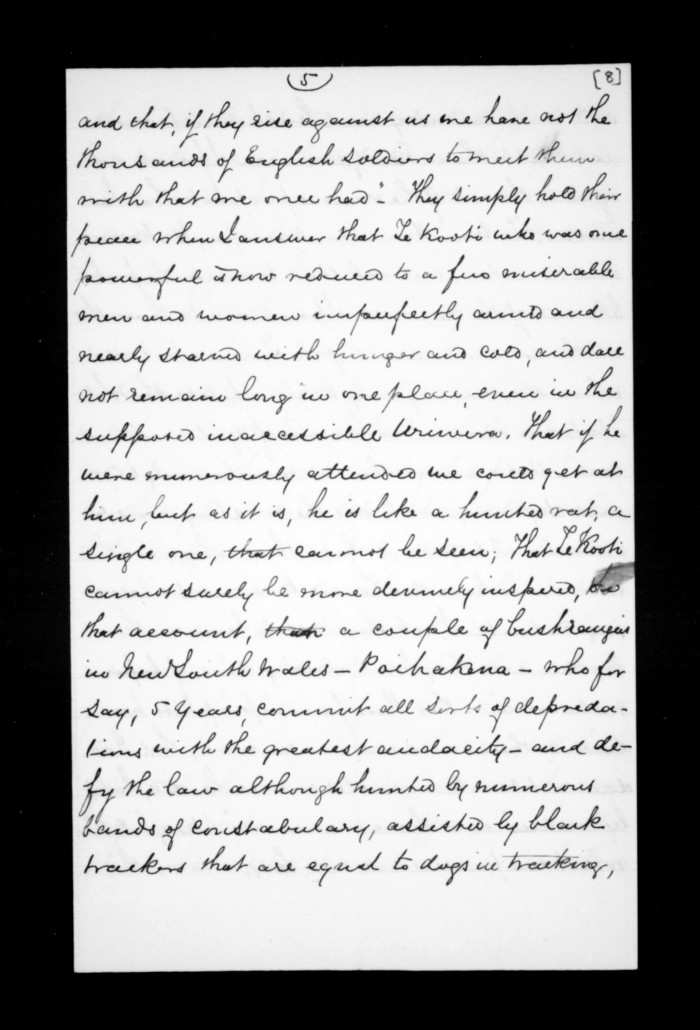 (5)
[8]
and that, if they rise against us we have not the
thousands of English soldiers to meet them
with that we once had". They simply hold their
peace when I answer that Te Kooti who was once
powerful is now reduced to a few miserable
men and women imperfectly armed and
nearly starved with hunger and cold, and dare
not remain long in one place, even in the
supposed inaccessible Uriwera. That if he
were numerously attended we could get at
him, but as it is, he is like a hunted rat, a
single one, that cannot be seen; That Te Kooti
cannot surely be more devinely inspired, on
that account, than a couple of bushrangers
in New South Wales – Poihakena – who for
say, 5 years, commit all sorts of depreda-
tions with the greatest audacity – and de-
fy the law although hunted by numerous
bands of constabulary, assisted by black
trackers that are equal to dogs in tracking,